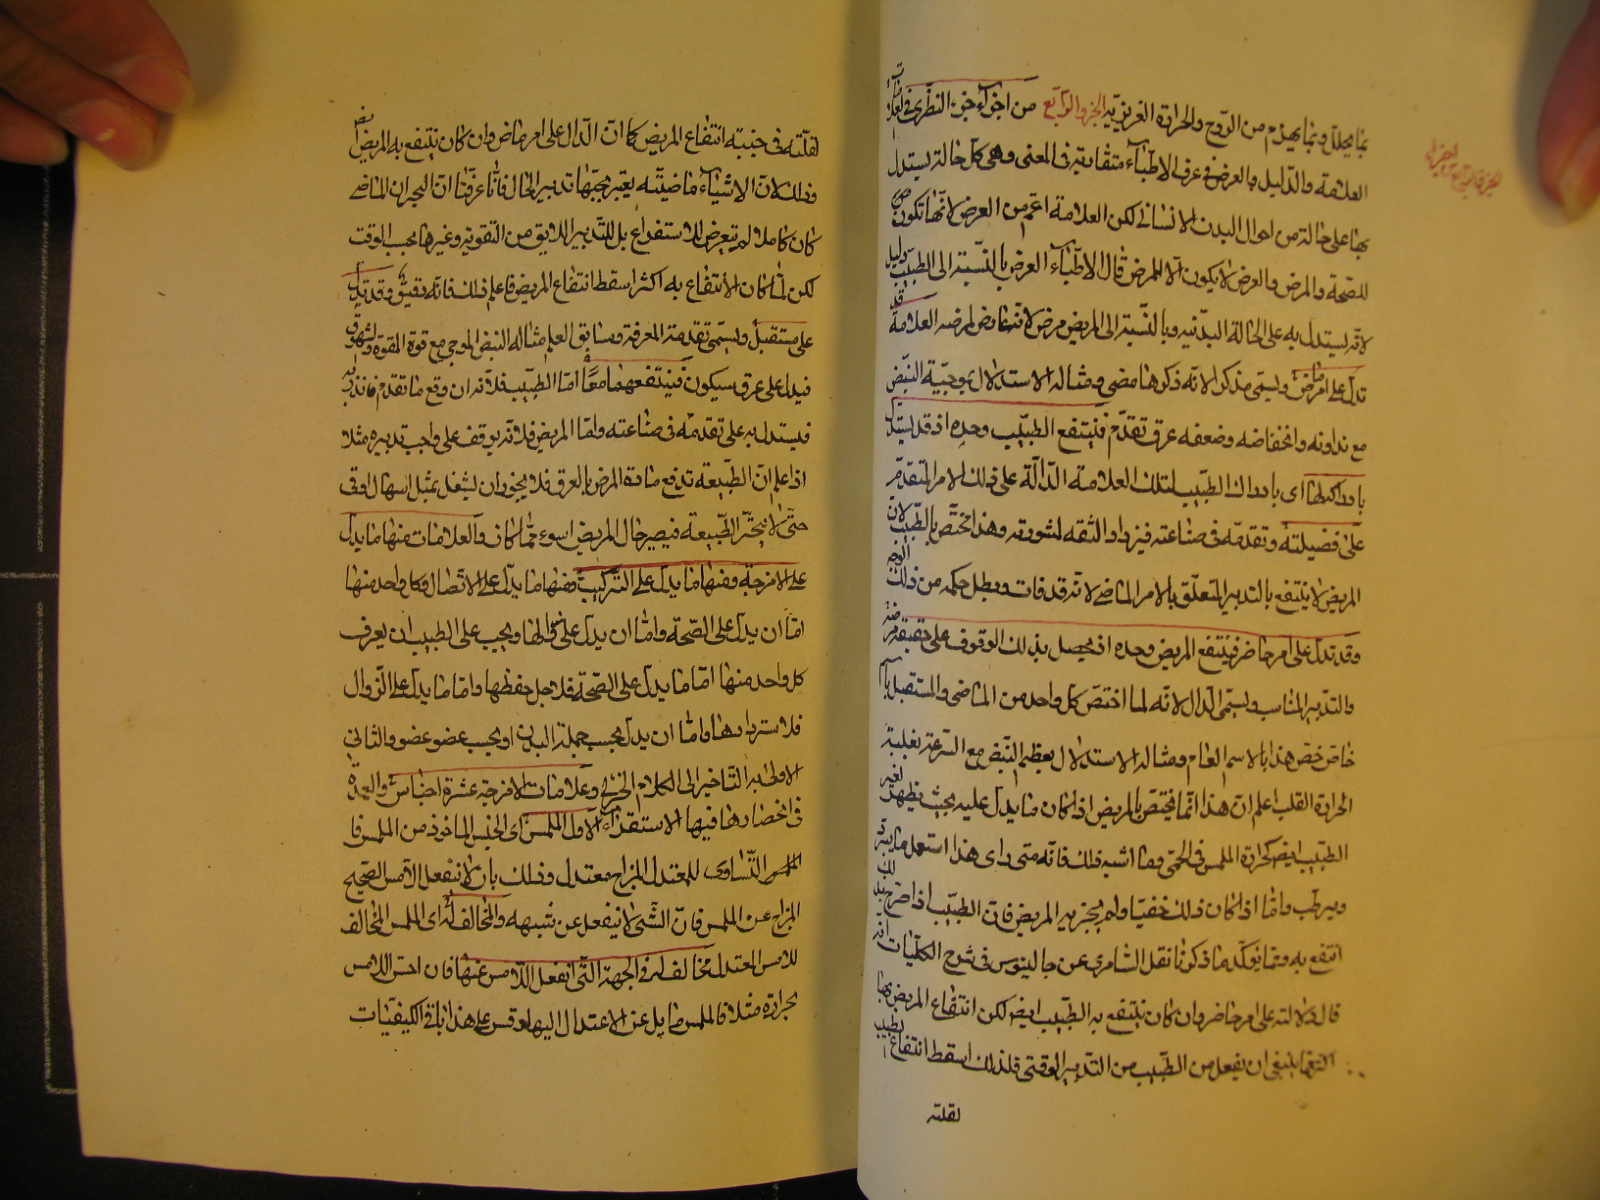 بما يحلل وبما يهدم من الروح والحرارة الغريزية الجزء الرابع من اجزاء جزء النظرى فى العلامات
العلامة والدليل والعرض فى عرف الاطباء متقاربة فى المعنى وهى كل حالة يستدل
بها على حالة من احوال البدن الانسانى لكن العلامة اعم من العرض لانها تكون
للصحة والمرض والعرض لا يكون الا للمرض قال الاطباء العرض بالنسبة الى الطبيب دليل
لانه يستدل به على الحالة البدنية وبالنسبة الى المريض عرض لانه عارض لمرضه العلامة قد
تدل على امر ماض ويسمى مذكرا لانه ذكر ما مضى ومثاله الاستدلال بموجية النبض
مع نداوته وانخفاضه وضعفه عرق تقدم فينتفع الطبيب وحده اذ قد يستدل
بادراكها اى بادراك الطبيب لتلك العلامة الدالة على ذلك الامر المتقدم
على فضيلته وتقدمه فى صناعته فيزداد الثقة لمشورته وهذا مختص بالطبيب لان
المريض لا ينتفع بالتدبير المتعلق بالامر الماضى لانه قد فات وبطل حكمه من ذلك الوجه
وقد تدل على امر حاضر فينتفع المريض وحده اذ يحصل بذلك الوقوف على حقيقة مرضه
والتدبير المناسب ويسمى الدال لانه لما اختص كل واحد من الماضى والمستقبل باسم
خاص خص هذا بالاسم العام ومثاله الاستدلال بعظم النبض مع السرعة بغلبة
الحرارة القلب اعلم ان هذا انما يختص بالمريض اذا كان ما يدل عليه بحيث يظهر لغير
الطبيب ايض كحرارة الملمس فى الحمى وما اشبه ذلك فانه متى راى هذا استعمل ما يبرد
ويرطب واما اذا كان ذلك خفيا ولم يخبر به المريض فان الطبيب اذا صرح بذلك
انتفع به ومما يؤكد ما ذكرنا نقل الشامرى عن جالينوس فى شرح الكليات انه
قال دلالته على امر حاضر وان كان ينتفع به الطبيب ايض لكن انتفاع المريض بها
انما ينبغى ان يفعل من الطبيب من التدبير الوقتى فلذلك اسقط انتفاع الطبيب
لقلته
لقلته فى جنبة انتفاع المريض كما ان الدال على امر ماض وان كان ينتفع به المريض ايض
وذلك لان الاشياء ماضيته يعتبر بحسبها تدبير الحال فانا اذا عرفنا ان البحران الماضى
كان كاملا لم يتعرض للاستفراغ بل للتدبير اللايق من التقوية وغيرها بحسب الوقت
لكن لما كان الانتفاع به اكثر اسقط انتفاع المريض فاعلم ذلك فانه دقيق وقد تدل
على مستقبل ويسمى تقدمة المعرفة وسابق العلم مثاله النبض الموجى مع قوة القوة وشهوق
فيدل على عرق سيكون فينتفعهما معا اما الطبيب فلانه ان وقع ما تقدم فانذر به
فيستدل به على تقدمه فى صناعته واما المريض فلانه يوقف على واجب تدبيره مثلا
اذا علم ان الطبيعة تدفع مادة المرض بالعرق فلا يجوز ان يشغل بمثل اسهال او قى
حتى لا يتحير الطبيعة فيصير حال المريض اسوء مما كان والعلامات منها ما يدل
على الامزجة ومنها ما يدل على التركيب ومنها ما يدل على الاتصال وكل واحد منها
اما ان يدل على الصحة واما ان يدل على زوالها ويجب على الطبيب ان يعرف
كل واحد منها اما ما يدل على الصحة فلاجل حفظها واما ما يدل على الزوال
فلاستردادها واما ان يدل بحسب جملة البدن او بحسب عضو عضو والثانى
الاولى به التاخير الى الكلام الجزئى وعلامات الامزجة عشرة اجناس والعمدة
فى انحصارها فيها الاستقراء الاول الملمس اى الجنس الماخوذ من الملمس فا
لملمس المساوى للمعتدل المزاج معتدل وذلك بان لا ينفعل اللامس الصحيح
المزاج عن الملمس فان الشئ لا ينفعل عن شبيهه والمخالف له اى الملمس المخالف
للامس المعتدل مخالف له فى الجهة التى انفعل اللامس عنها فان احس اللامس
بحرارة مثلا فالملمس مايل عن الاعتدال اليها وقس على هذا باقى الكيفيات